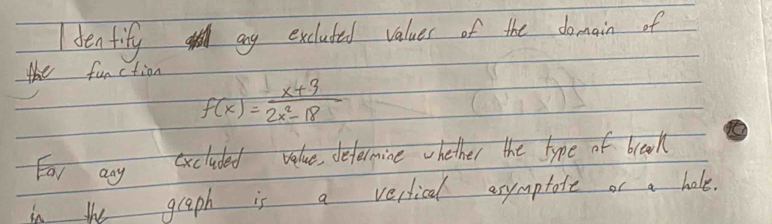 Identify any excluded values of the domain of
the function
f(x) = x+3 / 2x²-18
For any excluded value, determine whether the type of break
in the graph is a vertical asymptote or a hole.